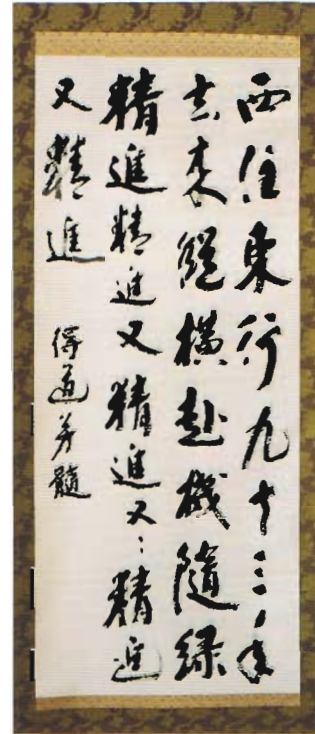 西住東行九十三年
去来縦横赴機随縁
精進精進又精進又々精進
又精進 得道等髄